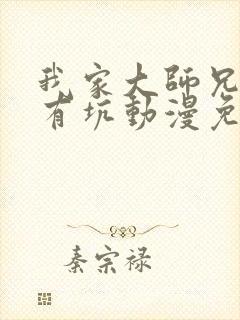 我家大師兄
有坑動漫免
秦宗禄